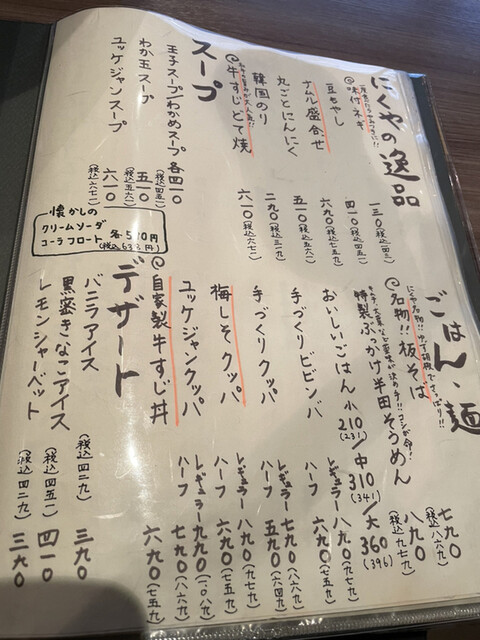 にくやの逸品
味付ネギ 一三〇(税込一四三)
豆もやし 四一〇(税込四五一)
ナムル盛合せ 六九〇(税込七五九)
丸ごとにんにく 五一〇(税込五六一)
韓国のり 二九〇(税込三一九)
◎牛すじどて焼 六一〇(税込六七一)
スープ
玉子スープ/わかめスープ 各四一〇(税込四五一)
わか玉スープ 五一〇(税込五六一)
ユッケジャンスープ 六一〇(税込六七一)
懐かしの
クリームソーダ
コーラフロート
各570円
ごはん、麺
にくや名物!!ゆず胡椒でさっぱり!!
◎名物!!板そば 七九〇(税込八六九)
特製ぶっかけ半田そうめん 八九〇(税込九七九)
おいしいごはん 小210(231)/中310(341)/大360(396)
手づくりビビンバ レギュラー八九〇(九七九)
ハーフ 六九〇(七五九)
手づくりクッパ レギュラー七九〇(八六九)
ハーフ 五九〇(六四九)
梅しそクッパ レギュラー八九〇(九七九)
ハーフ 六九〇(七五九)
ユッケジャンクッパ レギュラー九九〇(一〇八九)
ハーフ 七九〇(八六九)
◎自家製牛すじ丼 六九〇(七五九)
デザート
バニラアイス (税込四二九) 三九〇
黒蜜きなこアイス (税込四五一) 四一〇
レモンシャーベット (税込四二九) 三九〇